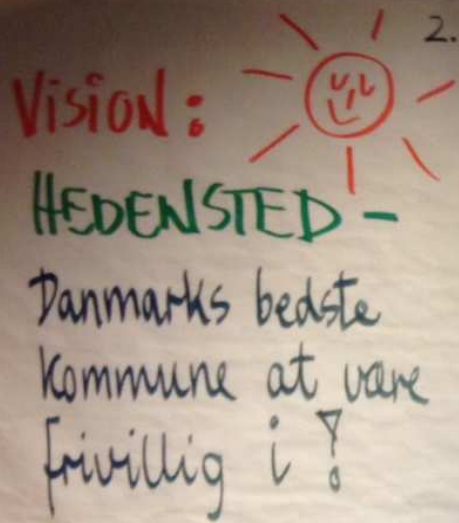 2.
Vision:
HEDENSTED -
Danmarks bedste
Kommune at være
frivillig i !